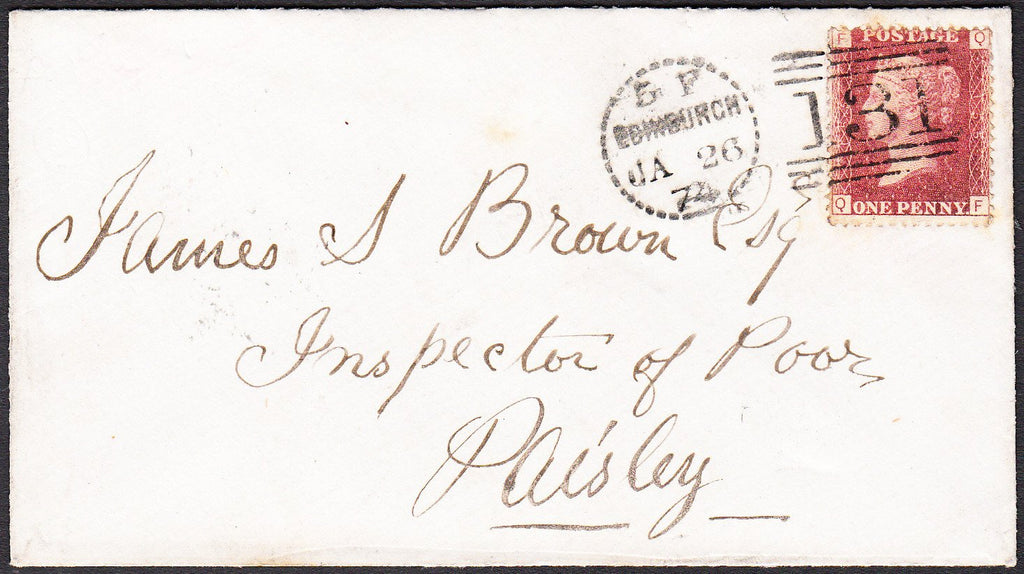 F POSTAGE Q
131
Q ONE PENNY F
& F
EDINBURGH
JA 26
James S Brown Esqr
Inspector of Poor
Paisley